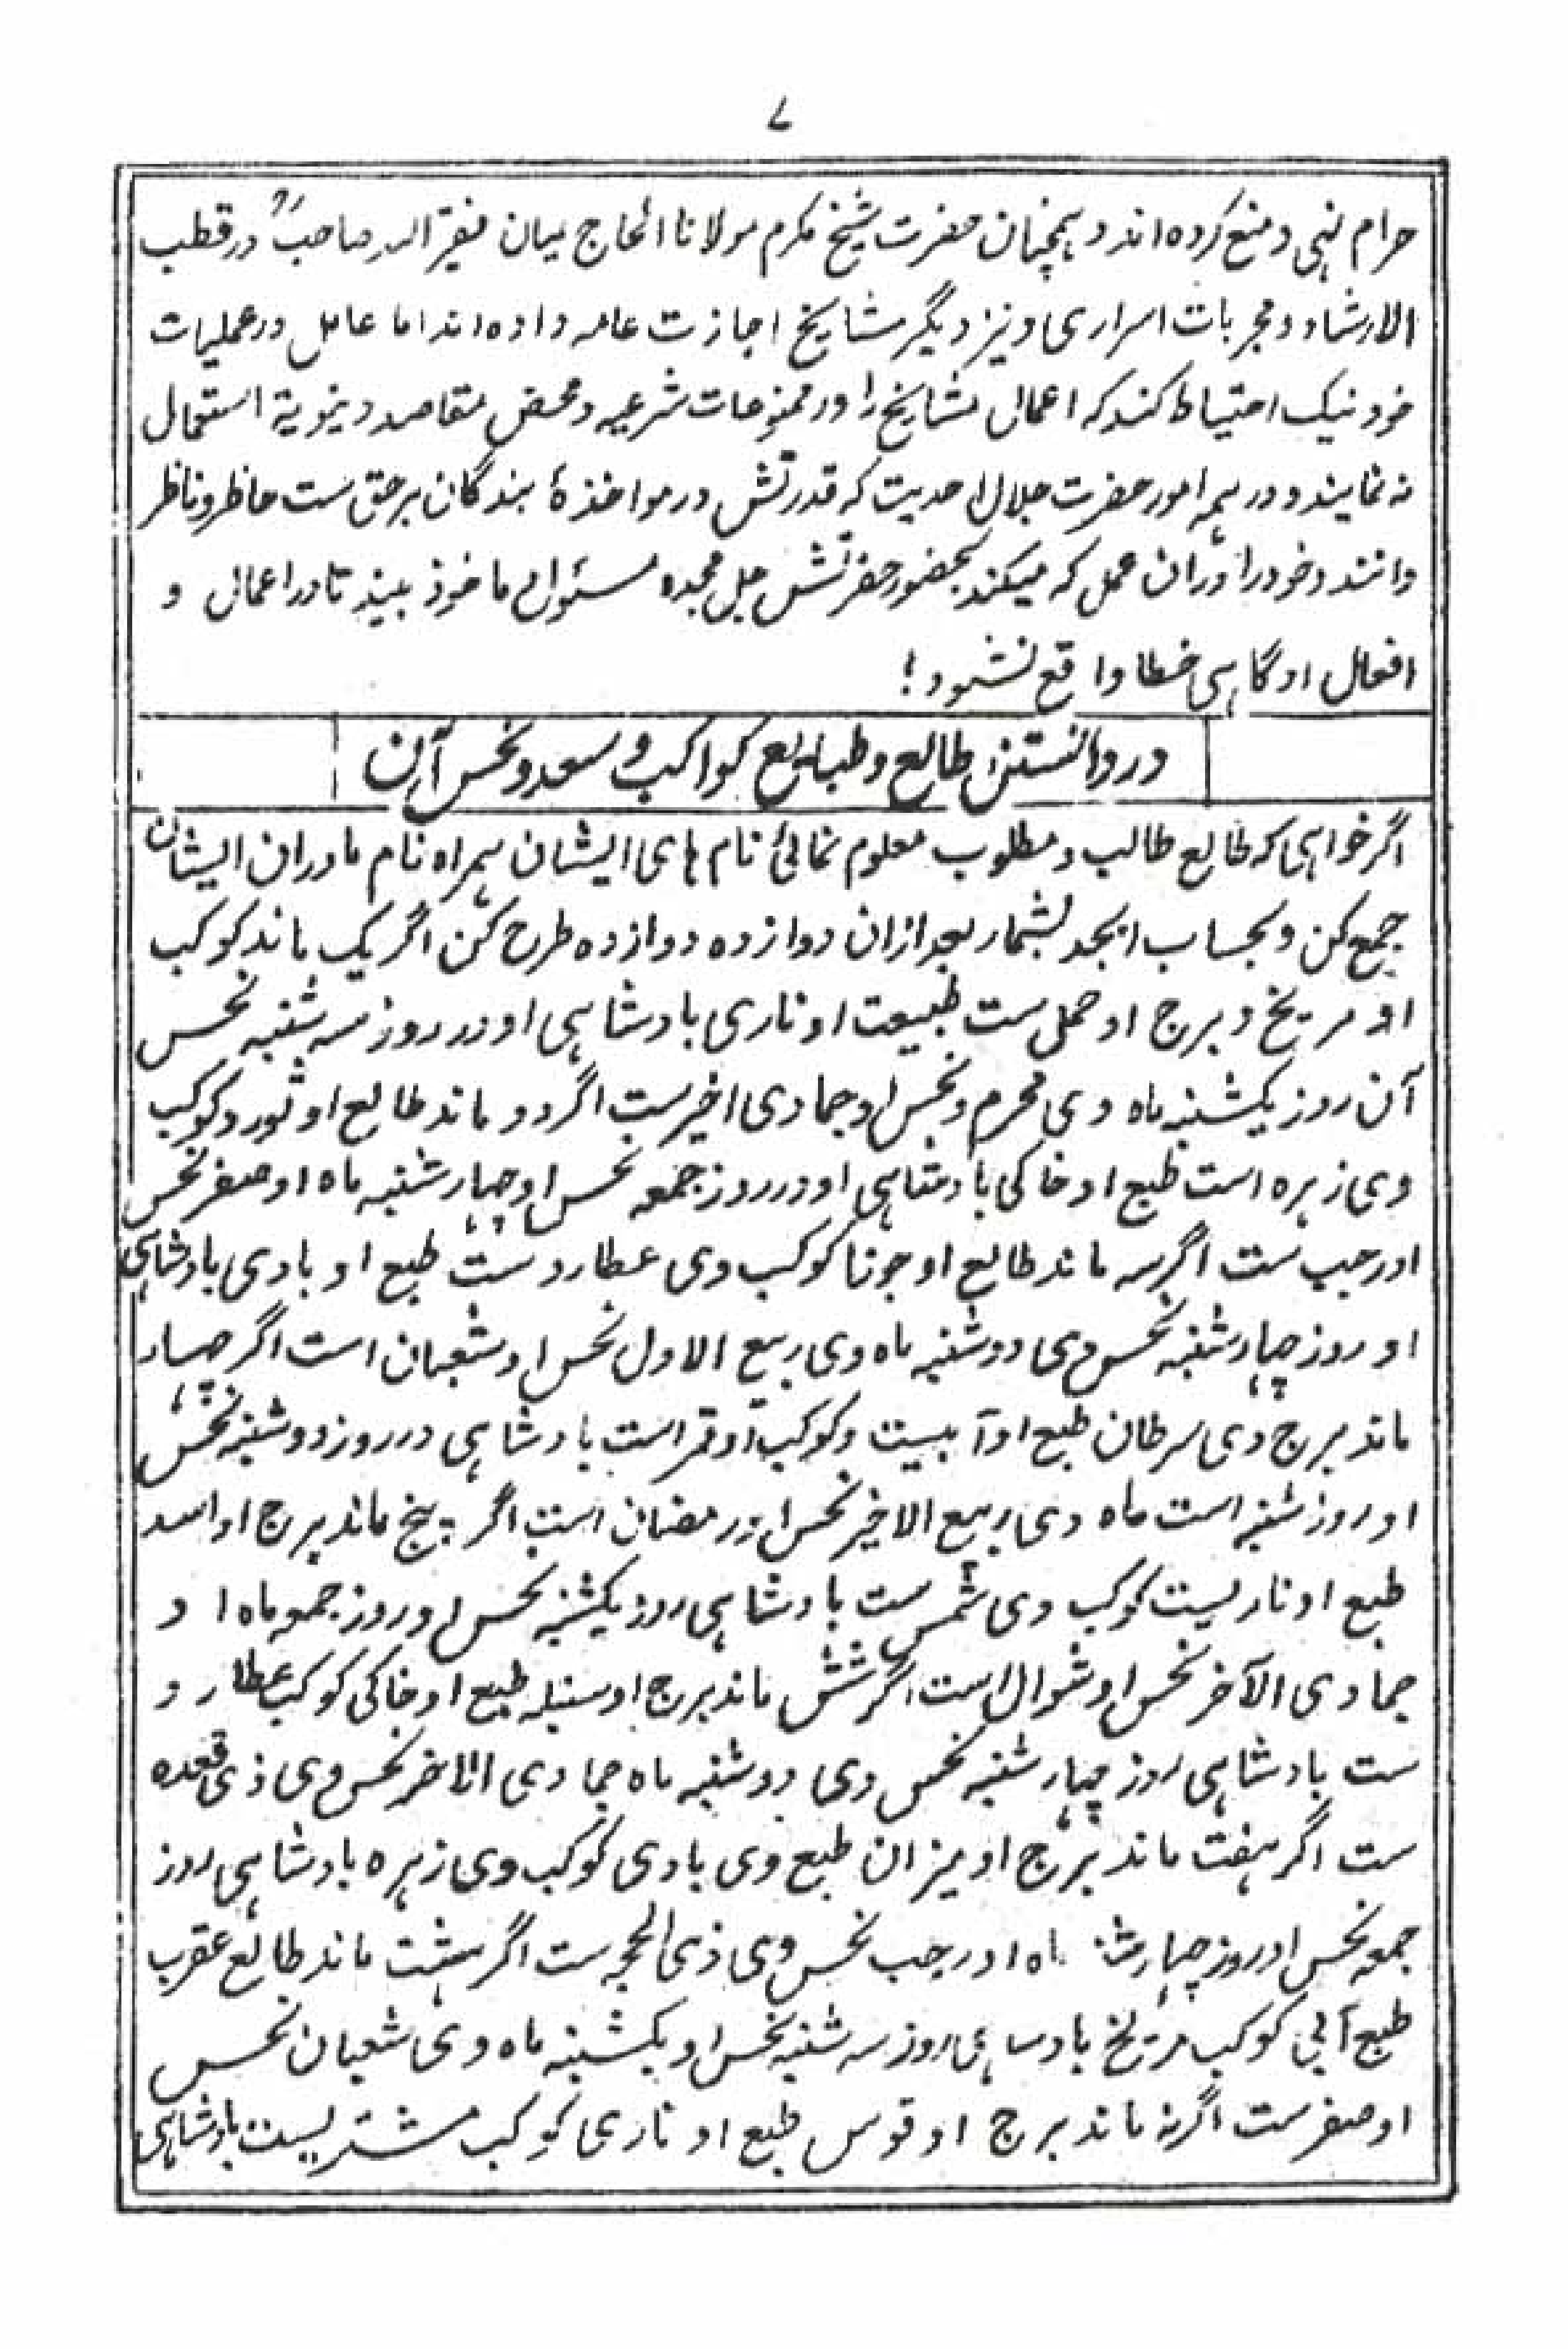 ۷
حرام نهی و منع کرده اند و همچنان حضرت شیخ مکرم مولانا الحاج میان فقیر الله صاحبؒ در قطب
الارشاد و مجربات اسراری و نیز دیگر مشایخ اجازت عامه داده اند اما عامل در عملیات
خود نیک احتیاط کند که اعمال مشایخ را در ممنوعات شرعیه و محض مقاصد دینویة استعمال
نه نمایند و در همه امور حضرت جلال احدیت که قدرتش در مواخذهٔ بندگان برحق ست حاظر و ناظر
دانند و خود را در آن عمل که میکند بحضور حضرتش جل مجده مسئول ماخوذ بیند تا در اعمال و
افعال او گاهی خطا واقع نشود!
در دانستن طالع و طبایع کواکب و سعد و نحس آن
اگر خواهی که طالع طالب و مطلوب معلوم نمائی نام های ایشان همراه نام مادران ایشان
جمع کن و بحساب ابجد بشمار بعد ازان دوازده دوازده طرح کن اگر یک ماند کوکب
او مریخ و برج او حمل ست طبیعت او ناری بادشاهی او در روز سه شنبه نحس
آن روز یکشنبه ماه وی محرم و نحس او جمادی اخیر ست اگر دو ماند طالع او ثور و کوکب
وی زهره است طبع او خاکی بادشاهی او در روز جمعه نحس او چهار شنبه ماه او صفر نحس
او رجب ست اگر سه ماند طالع او جوزا کوکب وی عطارد ست طبع او بادی بادشاهی
او روز چهار شنبه نحس وی دوشنبه ماه وی ربیع الاول نحس او شعبان است اگر چهار
ماند برج وی سرطان طبع او آبیست و کوکب او قمر است بادشاهی در روز دوشنبه نحس
او روز شنبه است ماه وی ربیع الاخیر نحس او رمضان است اگر پنج ماند برج او اسد
طبع او ناریست کوکب وی شمس ست بادشاهی روز یکشنبه نحس او روز جمعه ماه ا و
جمادی الآخر نحس او شوال است اگر شش ماند برج او سنبله طبع او خاکی کوکب عطار و
ست بادشاهی روز چهار شنبه نحس وی دوشنبه ماه جمادی الاخر نحس وی ذی قعده
ست اگر هفت ماند برج او میزان طبع وی بادی کوکب وی زهره بادشاهی روز
جمعه نحس او روز چهار ماه او رجب نحس وی ذی الحجه ست اگر هشت ماند طالع عقرب
طبع آبی کوکب مریخ بادساهی روز سه شنبه نحس او یکشنبه ماه وی شعبان نحس
او صفر ست اگر نه ماند برج او قوس طبع او ناری کوکب مشتریست بادشاهی